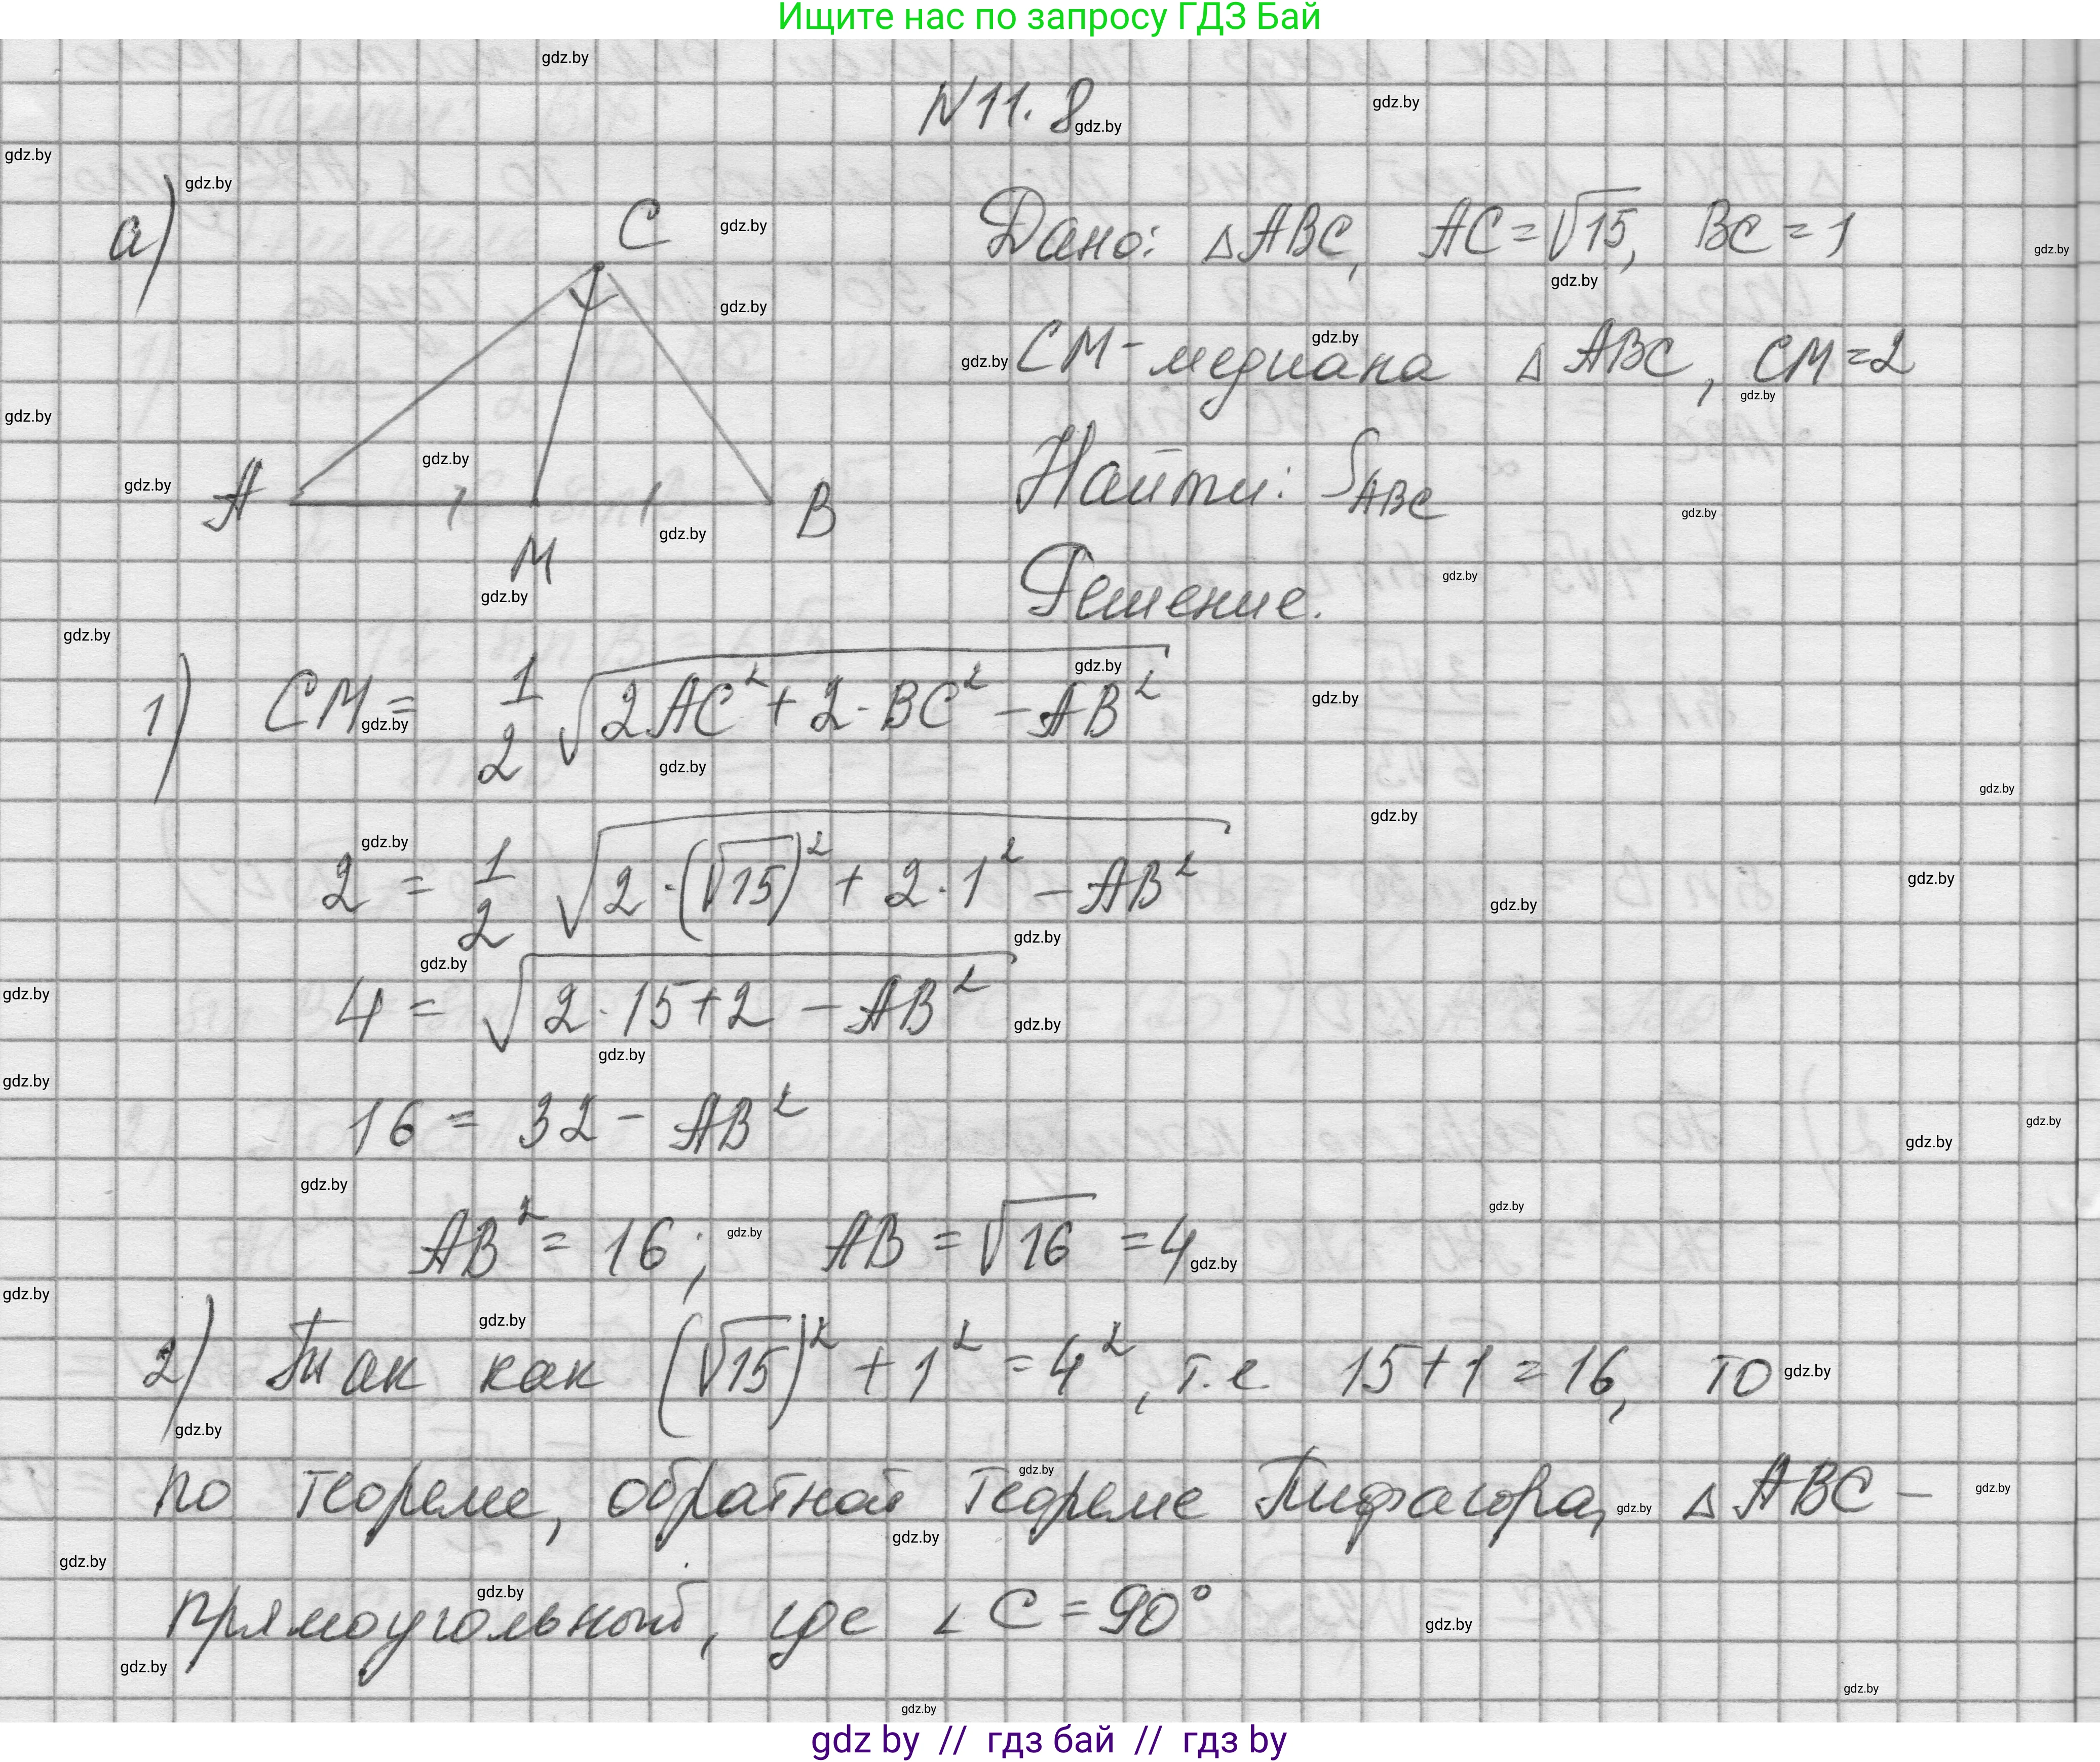 Ищите нас по запросу ГДЗ Бай
N11.8
а)
C
A
M
B
Дано: △ABC, AC=√15, BC=1
CM-медиана △ABC, CM=2
Найти: S_ABC
Решение.
1) CM = 1/2 √(2AC² + 2·BC² - AB²)
2 = 1/2 √(2·(√15)² + 2·1² - AB²)
4 = √(2·15+2 - AB²)
16 = 32 - AB²
AB² = 16; AB = √16 = 4
2) Так как (√15)² + 1² = 4², т.е 15+1=16, то
по теореме, обратной теореме Пифагора, △ABC -
прямоугольный, где ∠C = 90°
gdz by // гдз бай // гдз by